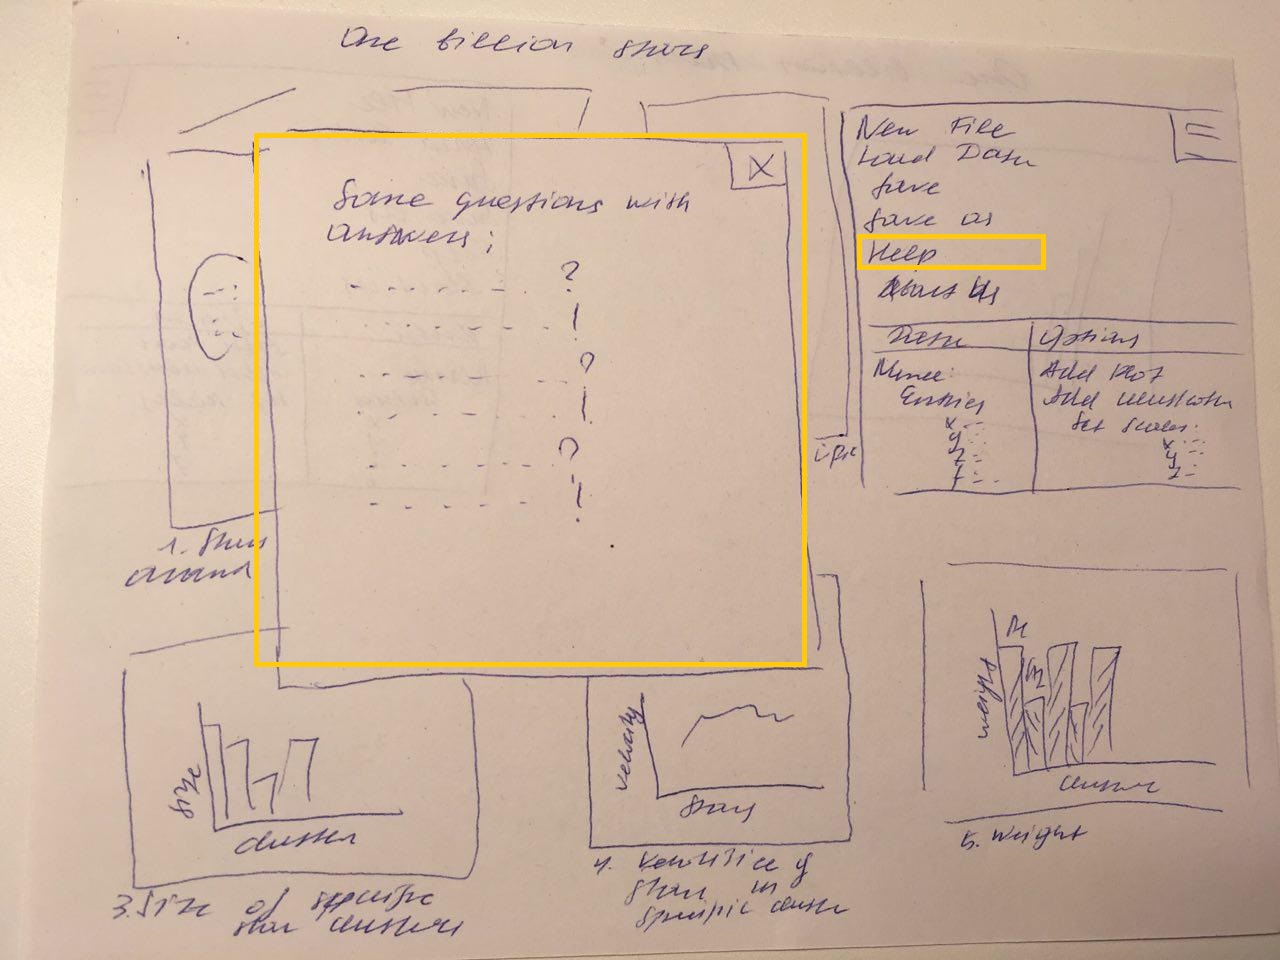 One billion stars
New File
Load Data
Save
Save as
Help
About Us
X
Some questions with
answers:
?
!
?
!
?
!
Data
Options
Name:
Entries
x
y
z
Add Plot
Add
Set scales:
x
y
z
1. Stars
around
size
cluster
3. Size of specific
star clusters
velocity
stars
4. of
stars in
specific cluster
weight
cluster
5. Weight